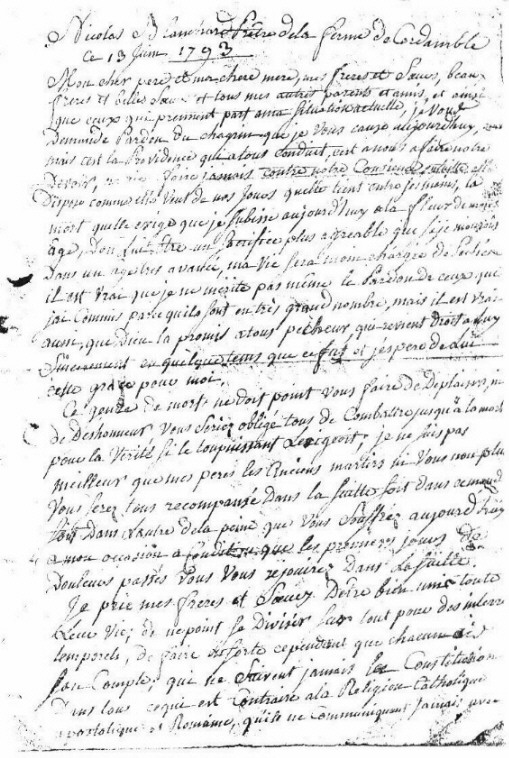 Nicolas Prêtre de la ferme de Cordamble
Ce 13 Juin 1793
Mon cher pere et ma chere mere, mes freres et Sœurs, beau
freres et belles Sœurs et tous mes autres parents et amis, et ainsi
que ceux qui prennent part ama Situation actuelle, je vous
Demande Pardon du chagrin que je vous cauze aujourd'huy,
mais cest la Providence qui atous conduit, cest anous afaire notre
Devoir, faire jamais contre notre Consience
Dispose comme elle veut de nos Jours quelle tient entre ses mains, la
mort quelle exige que je Subisse aujourd'huy ala fleur de mon
age, Doit être un Sacrifice plus agreable que si je mourais
Dans un age tres avancé, ma vie sera moin chargée de
il est vrai que je ne merite pas même le Pardon de ceux que
jai Commis parce quils sont en très grand nombre, mais il est vrai
aussi, que Dieu la promis atous pecheur qui revient Droit aluy
Sincerement en quelque tems que ce fut et j'espere de Lui
cette grace pour moi.
Ce genre de mort ne Doit point vous faire de Deplaisir, ni
de Deshonneur vous Seriez obligé tous de Combattre jusqu'à la mort
pour la Verité Si le toupuissant Lexigeoit, je ne suis pas
meilleur que mes peres les Anciens martirs ni Vous non plus
Vous serez tous recompansé Dans la suitte soit dans ce monde
soit Dans Lautre de la peine que vous Souffrez aujourd'huy
a mon occasion a Condition que les premiers jours de
Douleurs passés Vous Vous rejouirez Dans la Suitte.
Je prie mes freres et Sœurs D'etre bien unis toute
Leur Vie, de ne point se Diviser Sur tout pour des interre
temporels, de faire ensorte cependant que chacun ai
Son Compte, que ne Suivent jamais la Constitution
Dans tous ceque est Contraire ala Religion Catholique
apostolique et Romaine, quils ne Communiquent Jamais avec